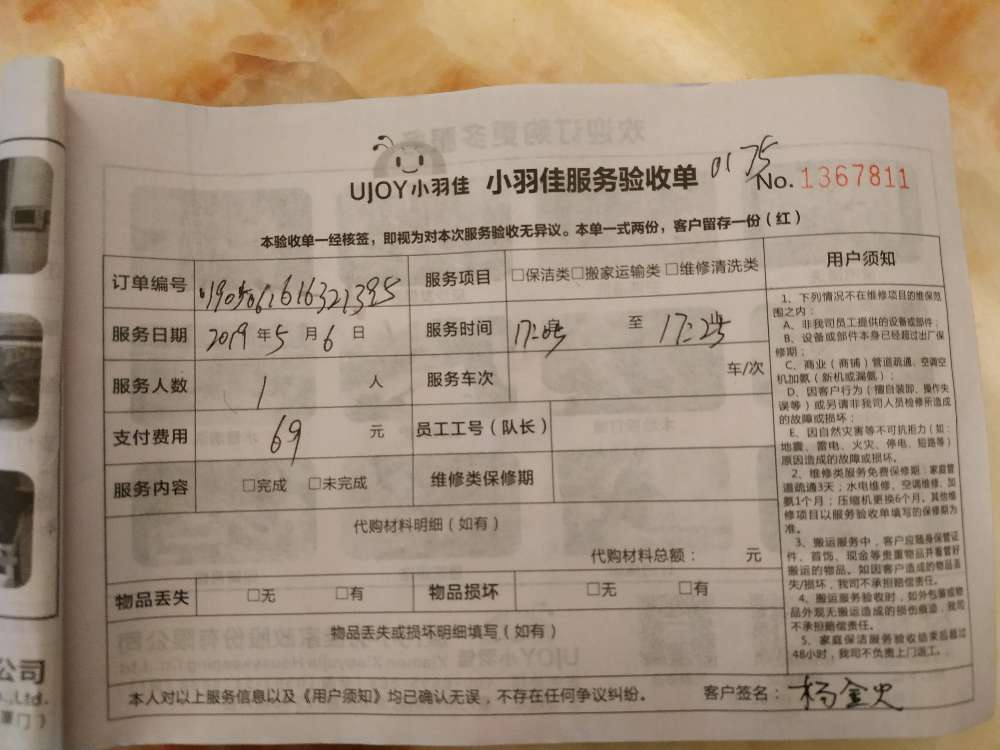 UJOY小羽佳 小羽佳服务验收单 0175 No. 1367811
本验收单一经核签，即视为对本次服务验收无异议。本单一式两份，客户留存一份（红）
订单编号 服务项目 □保洁类□搬家运输类□维修清洗类
服务日期 2019年5月6日 服务时间 至
服务人数 1 人 服务车次 车/次
支付费用 69 元 员工工号（队长）
服务内容 □完成 □未完成 维修类保修期
代购材料明细（如有）
代购材料总额： 元
物品丢失 □无 □有 物品损坏 □无 □有
物品丢失或损坏明细填写（如有）
用户须知
1、下列情况不在维修项目的维保范
围之内：
A、非我司员工提供的设备或部件；
B、设备或部件本身已经超过出厂保
修期；
C、商业（商铺）管道疏通、空调空
机加氨（新机或漏氨）；
D、因客户行为（擅自装卸、操作失
误等）或另请非我司人员检修所造成
的故障或损坏；
E、因自然灾害等不可抗拒力（如：
地震、雷电、火灾、停电、短路等）
原因造成的故障或损坏。
2、维修类服务免费保修期：家庭管
道疏通3天；水电维修、空调维修、加
氨1个月；压缩机更换6个月。其他维
修项目以服务验收单填写的保修期为
准。
3、搬运服务中，客户应随身保管证
件、首饰、现金等贵重物品并看管好
搬运的物品。如因客户造成的物品丢
失/损坏，我司不承担赔偿责任。
4、搬运服务验收时，如外包装或物
品外观无搬运造成的损伤痕迹，我司
不承担赔偿责任。
5、家庭保洁服务验收结束后超过
48小时，我司不负责上门返工。
本人对以上服务信息以及《用户须知》均已确认无误，不存在任何争议纠纷。 客户签名：杨金火
公司
.,Ltd.
厦门）